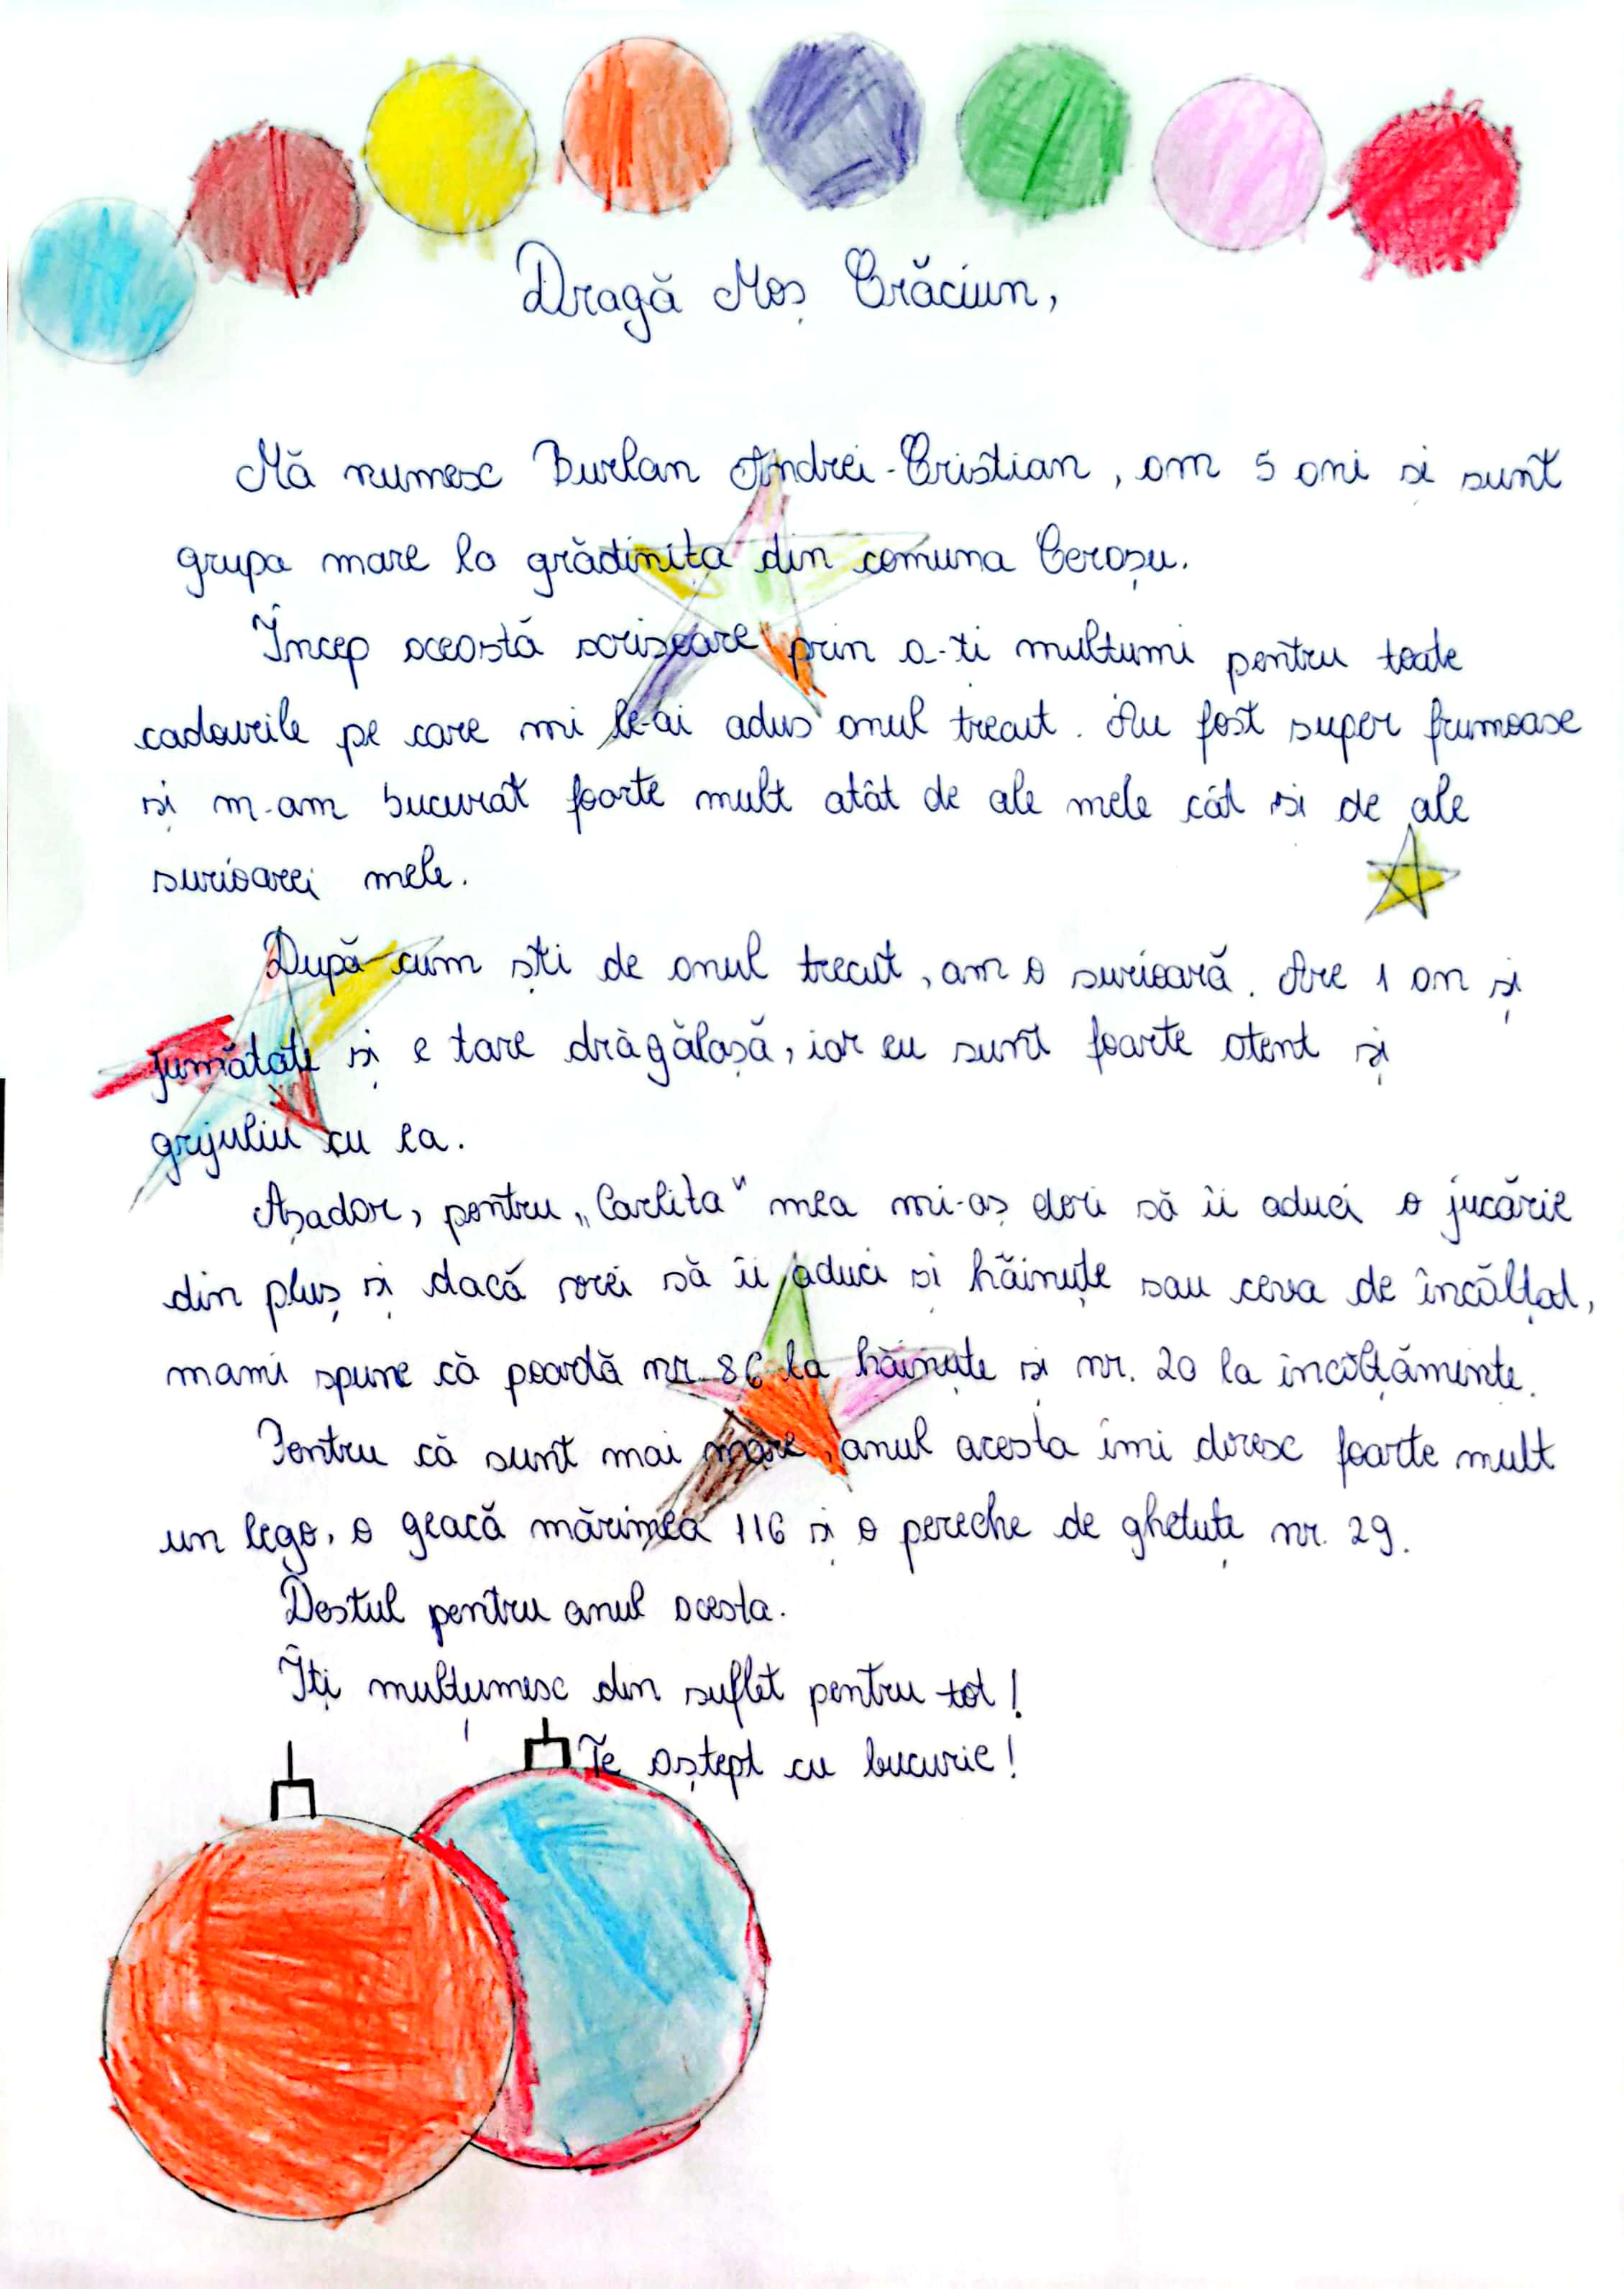 Dragă Moș Crăciun,
Mă numesc Burlan Andrei-Cristian, am 5 ani și sunt
grupa mare la grădinița din comuna Cerașu.
Încep această scrisoare prin a-ti multumi pentru toate
cadourile pe care mi le-ai adus anul trecut. Au fost super frumoase
și m-am bucurat foarte mult atât de ale mele cât și de ale
surioarei mele.
După cum ști de anul trecut, am o surioară. Are 1 an și
jumătate și e tare drăgălașă, iar eu sunt foarte atent și
grijuliu cu ea.
Așadar, pentru „Carlita" mea mi-aș dori să îi aduci o jucărie
din pluș și dacă vrei să îi aduci și hăinuțe sau ceva de încălțat,
mami spune că poartă nr. 86 la hăinuțe și nr. 20 la încălțăminte.
Pentru că sunt mai mare, anul acesta îmi doresc foarte mult
un lego, o geacă mărimea 116 și o pereche de ghetuțe nr. 29.
Destul pentru anul acesta.
Îți mulțumesc din suflet pentru tot!
Te aștept cu bucurie!